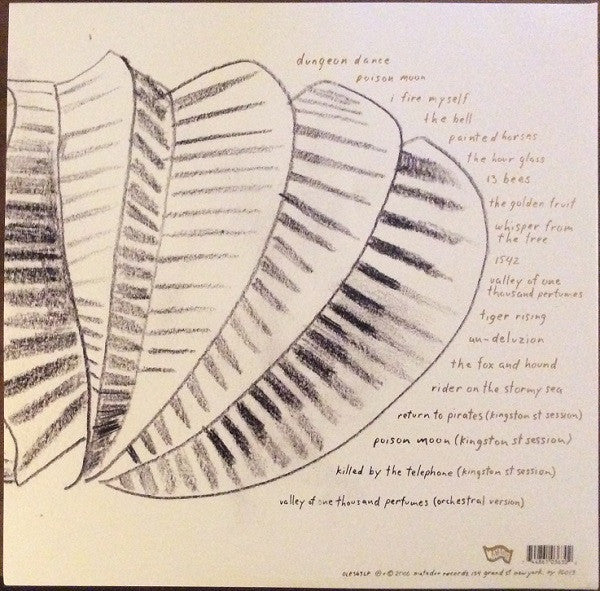 dungeon dance
poison moon
i fire myself
the bell
painted horses
the hour glass
13 bees
the golden fruit
whisper from
the tree
1542
valley of one
thousand perfumes
tiger rising
un-deluzion
the fox and hound
rider on the stormy sea
return to pirates (kingston st session)
poison moon (kingston st session)
killed by the telephone (kingston st session)
valley of one thousand perfumes (orchestral version)
matador records 134 grand st new york, ny 10013